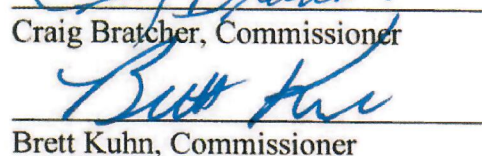 Craig Bratcher, Commissioner
Brett Kuhn
Brett Kuhn, Commissioner